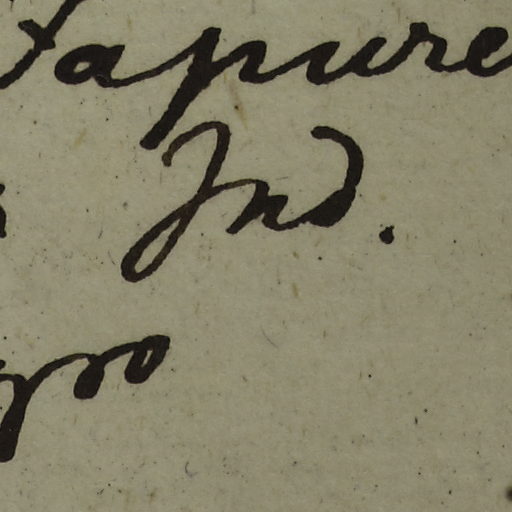 Tapure
Ind.
gro